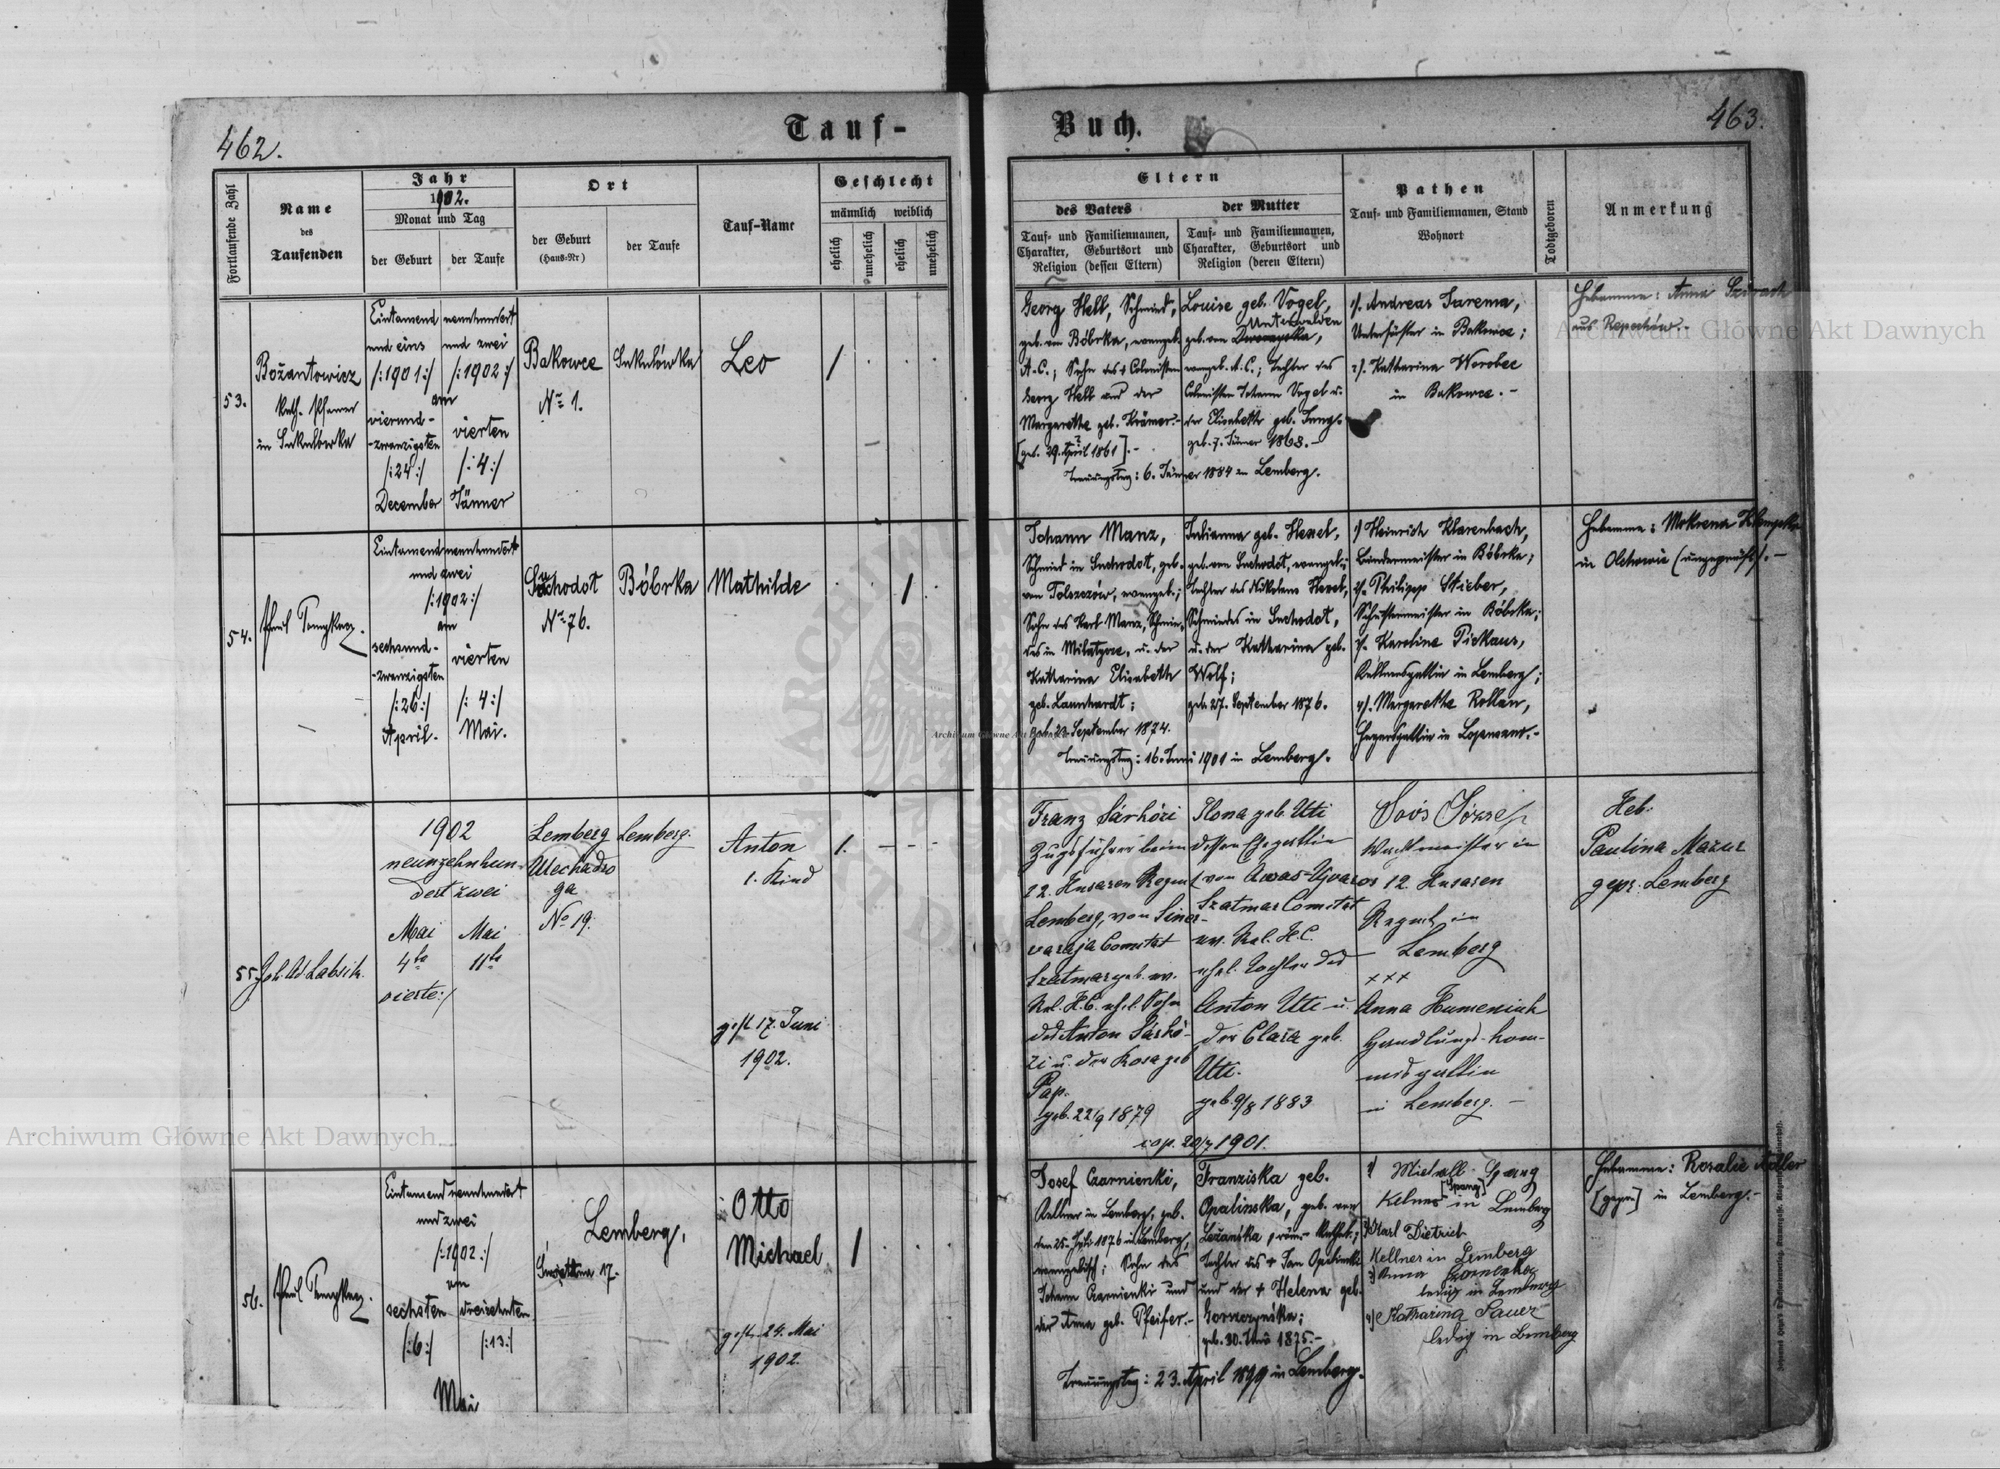 462.
Tauf-
Buch.
463.
Fortlaufende Zahl
Name
des
Taufenden
Jahr
1902.
Monat und Tag
der Geburt
der Taufe
Ort
der Geburt
(Haus-Nr)
der Taufe
Tauf-Name
Geschlecht
männlich
weiblich
ehelich
unehelich
ehelich
unehelich
Eltern
des Vaters
der Mutter
Tauf- und Familiennamen,
Charakter, Geburtsort und
Religion (dessen Eltern)
Tauf- und Familiennamen,
Charakter, Geburtsort und
Religion (deren Eltern)
Pathen
Tauf- und Familiennamen, Stand
Wohnort
Todtgeboren
Anmerkung
53.
Božantowicz
Kath. Pfarrer
in
Eintausend neunhundert
und eins
/:1901:/
am
vierund-
-zwanzigsten
/:24:/
December
und zwei
/:1902:/
vierten
/:4:/
Jänner
Bakowce
No 1.
Leo
/
Georg Hell, Schmied,
geb. von Bóbrka, evangel.
A.C.; Sohn des + Colonisten
Georg Hell und der
Margarethe geb. Krämer.-
[geb. 29. April 1861].-
Louise geb. Vogel,
Unterwalden
evangel. A.C.; Tochter des
Colonisten Johann Vogel u.
der Elisabeth geb. Jung.
geb. 7. Jänner 1863.-
Trauungstag: 6. Jänner 1884 in Lemberg.
1/. Andreas Jarema,
Unterförster in Bakowce;
2/. Katharina Worobec
in Bakowce.-
Hebamme: Anna
aus Repechów.-
54.
Paul
Eintausend neunhundert
und zwei
/:1902:/
am
sechsund-
-zwanzigsten
/:26:/
April.
vierten
/:4:/
Mai.
Suchodot
No 76.
Bóbrka
Mathilde
/
Johann Manz,
Schmied in Suchodot, geb.
von Tolszczów, evangel.;
Sohn des Karl Manz, Schmie-
des in u. der
Katharina Elisabeth
geb. Launhardt;
geb. September 1874.
Julianna geb. Hexel,
geb. von Suchodot, evangel.;
Tochter des Nikolaus Hexel,
Schmiedes in Suchodot,
u. der Katharina geb.
Wolf;
geb. 27. September 1876.
Trauungstag: 16. Juni 1901 in Lemberg.
1/ Heinrich Klarenbach,
Bindermeister in Bóbrka;
2/. Philipp Stieber,
Schustermeister in Bóbrka;
3/. Karolina Pickaus,
Kellnersgattin in Lemberg;
4/. Margarethe Rollan,
Hegersgattin in
Hebamme: Mokrena
in Olchowie (ungeprüft).-
55.
1902
neunzehnhun-
dert zwei
Mai
4te
vierte:/
Mai
11te
Lemberg
No 19.
Lemberg.
Anton
1. Kind
gest 17. Juni
1902.
1.
Franz Sárközi
Zugsführer beim
12. Husaren Regm
Lemberg, von Sinér-
varalja Comitat
Szatmar geb. ev.
Rel. H.C. ehel. Sohn
des Anton Sárkö-
zi u. der Rosa geb
Pap.
geb. 22/9 1879
Ilona geb. Uti
dessen Ehegattin
(von Avas-Ujvaros
Szatmar Comitat
ev. Rel. H.C.
ehel. Tochter des
Anton Uti u.
der Clara geb.
Uti.
geb. 9/8 1883
cop. 20/7 1901.
Soós József
Wachtmeister in
12. Husaren
Regmt. in
Lemberg
xxx
Anna Humeniuk
Handlungs-kom-
misgattin
in Lemberg.-
Heb:
Paulina Mazur
gepr. Lemberg
56.
Paul
Eintausend neunhundert
und zwei
/:1902:/
am
sechsten
/:6:/
dreizehnten
/:13:/
Mai
Lemberg,
17.-
Otto
Michael
/
gest. 24. Mai
1902.
Josef Czarniecki,
Kellner in Lemberg, geb.
den 25. 1876 in Lemberg,
evangelisch; Sohn des
Johann Czarniecki und
der Anna geb. Pfeifer.-
Franziska geb.
Opalinska, geb. von
Leżańska, röm. Kathol.;
Tochter des + Jan Opalinski
und der + Helena geb.
Gorczyńska;
geb. 30. 1875.-
Trauungstag: 23. April 1899 in Lemberg.
1/
[Spang]
Kelner in Lemberg
2/ Karl Dietrich
Kellner in Lemberg
3/ Anna
ledig in Lemberg
4/ Katharina Sauer
ledig in Lemberg
Hebamme: Rosalie Adler
[gepr.] in Lemberg.-
Archiwum Główne Akt Dawnych
Archiwum Główne Akt Dawnych
Archiwum Główne Akt Dawnych